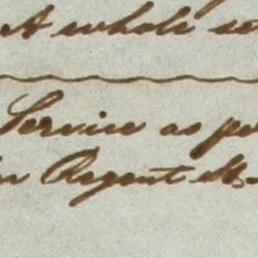 A whole
Service as pe
Regent St